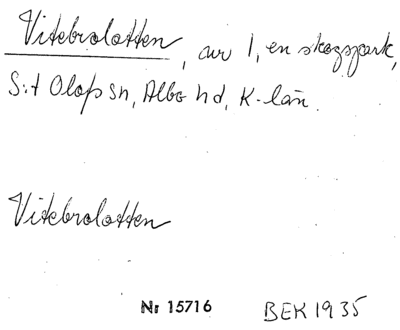 Vitebrolotten, avr 1, en skogspark,
S:t Olofs sn, Albo hd, K-län.
Vitebrolotten
Nr 15716 BEK 1935